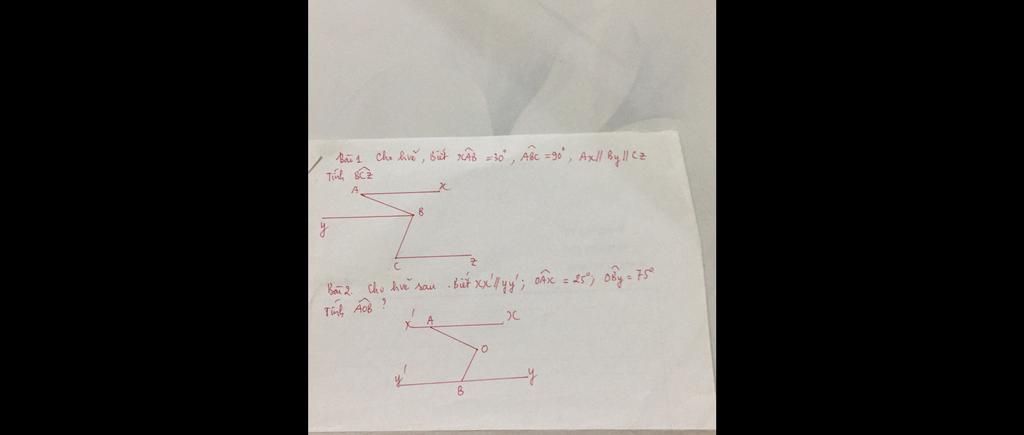 Bài 1 Cho hvẽ, Biết xÂB = 30°, AB̂C = 90°, Ax // By // Cz
Tính BĈz
A x
y B
C z
Bài 2. Cho hvẽ sau . Biết xx' // yy'; OÂx = 25°; OB̂y = 75°
Tính AÔB ?
x' A x
O
y' B y